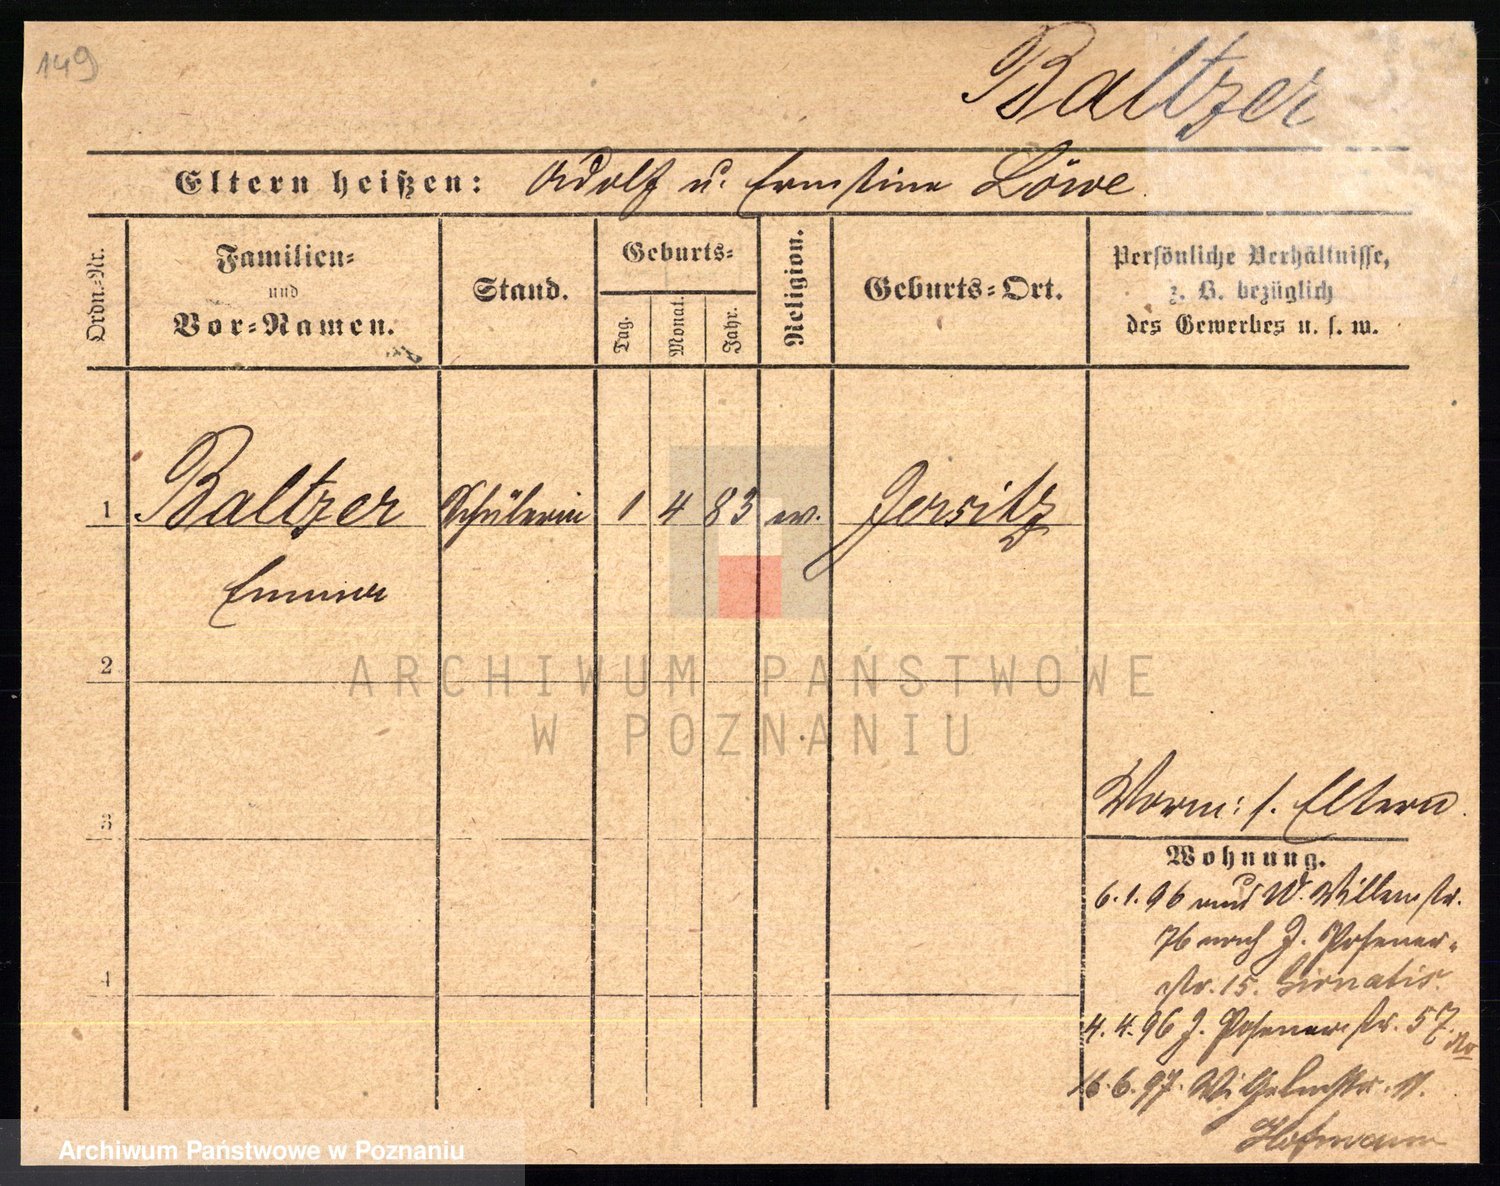 149
Baltzer
Eltern heißen: Adolf u. Ernstine Löwe
Ordn.-Nr.
Familien-
und
Vor-Namen.
Stand.
Geburts-
Tag.
Monat.
Jahr.
Religion.
Geburts-Ort.
Persönliche Verhältnisse,
z. B. bezüglich
des Gewerbes u. s. w.
1 Baltzer Schülerin 1 4 83 ev. Jersitz
Emma
2
ARCHIWUM PAŃSTWOWE
W POZNANIU
3
4
Vorm: s. Eltern
Wohnung.
6.1.96 W.
76 nach J. Posener-
str. 15.
4.4.96 J. Posenerstr. 57
16.6.97. Wilhelmstr.
Hofmann
Archiwum Państwowe w Poznaniu